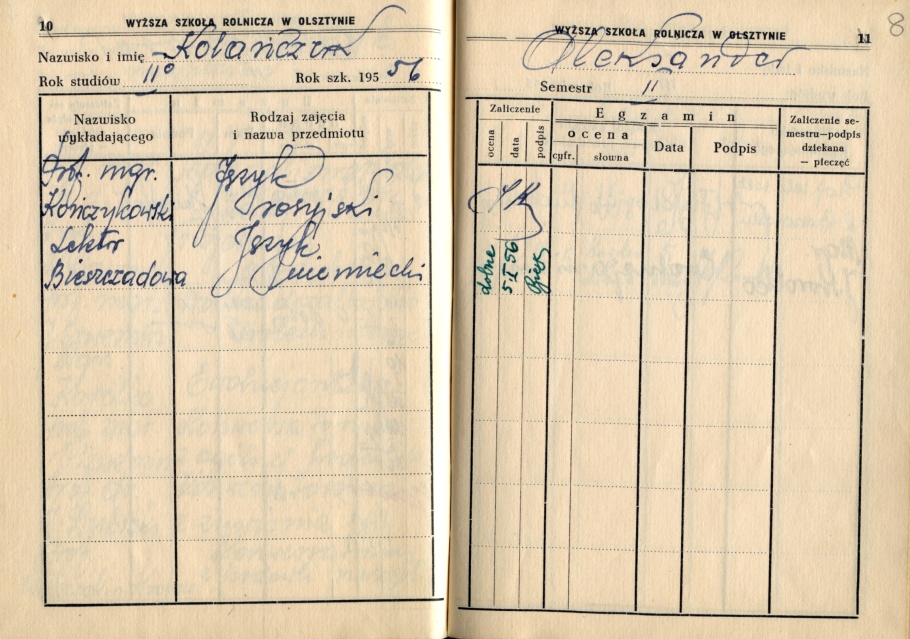 10
WYŻSZA SZKOŁA ROLNICZA W OLSZTYNIE
Nazwisko i imię Kołańczak
Rok studiów II° Rok szk. 195 56
Nazwisko wykładającego
Rodzaj zajęcia i nazwa przedmiotu
mgr. Język
Kończykowski rosyjski
Lektor Język
Bieszczadowa niemiecki
WYŻSZA SZKOŁA ROLNICZA W OLSZTYNIE
11
8
Aleksander
Semestr II
Zaliczenie
ocena
data
podpis
Egzamin
ocena
cyfr.
słowna
Data
Podpis
Zaliczenie se-
mestru—podpis
dziekana
— pieczęć
dobre
5.I 56